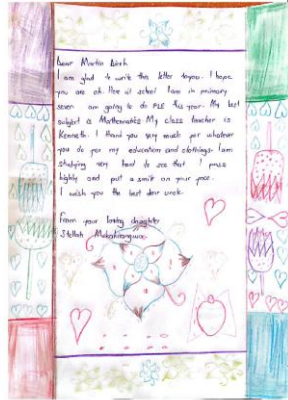 Dear Martin
I am glad to write this letter to you. I hope
you are ok. Here at school I am in primary
seven am going to do PLE this year. My best
subject is Mathematics My class teacher is
Kenneth. I thank you very much for whatever
you do for my education and clothings. I am
studying very hard to see that I pass
highly and put a smile on your face.
I wish you the best dear uncle.
From your loving daughter
Stellah